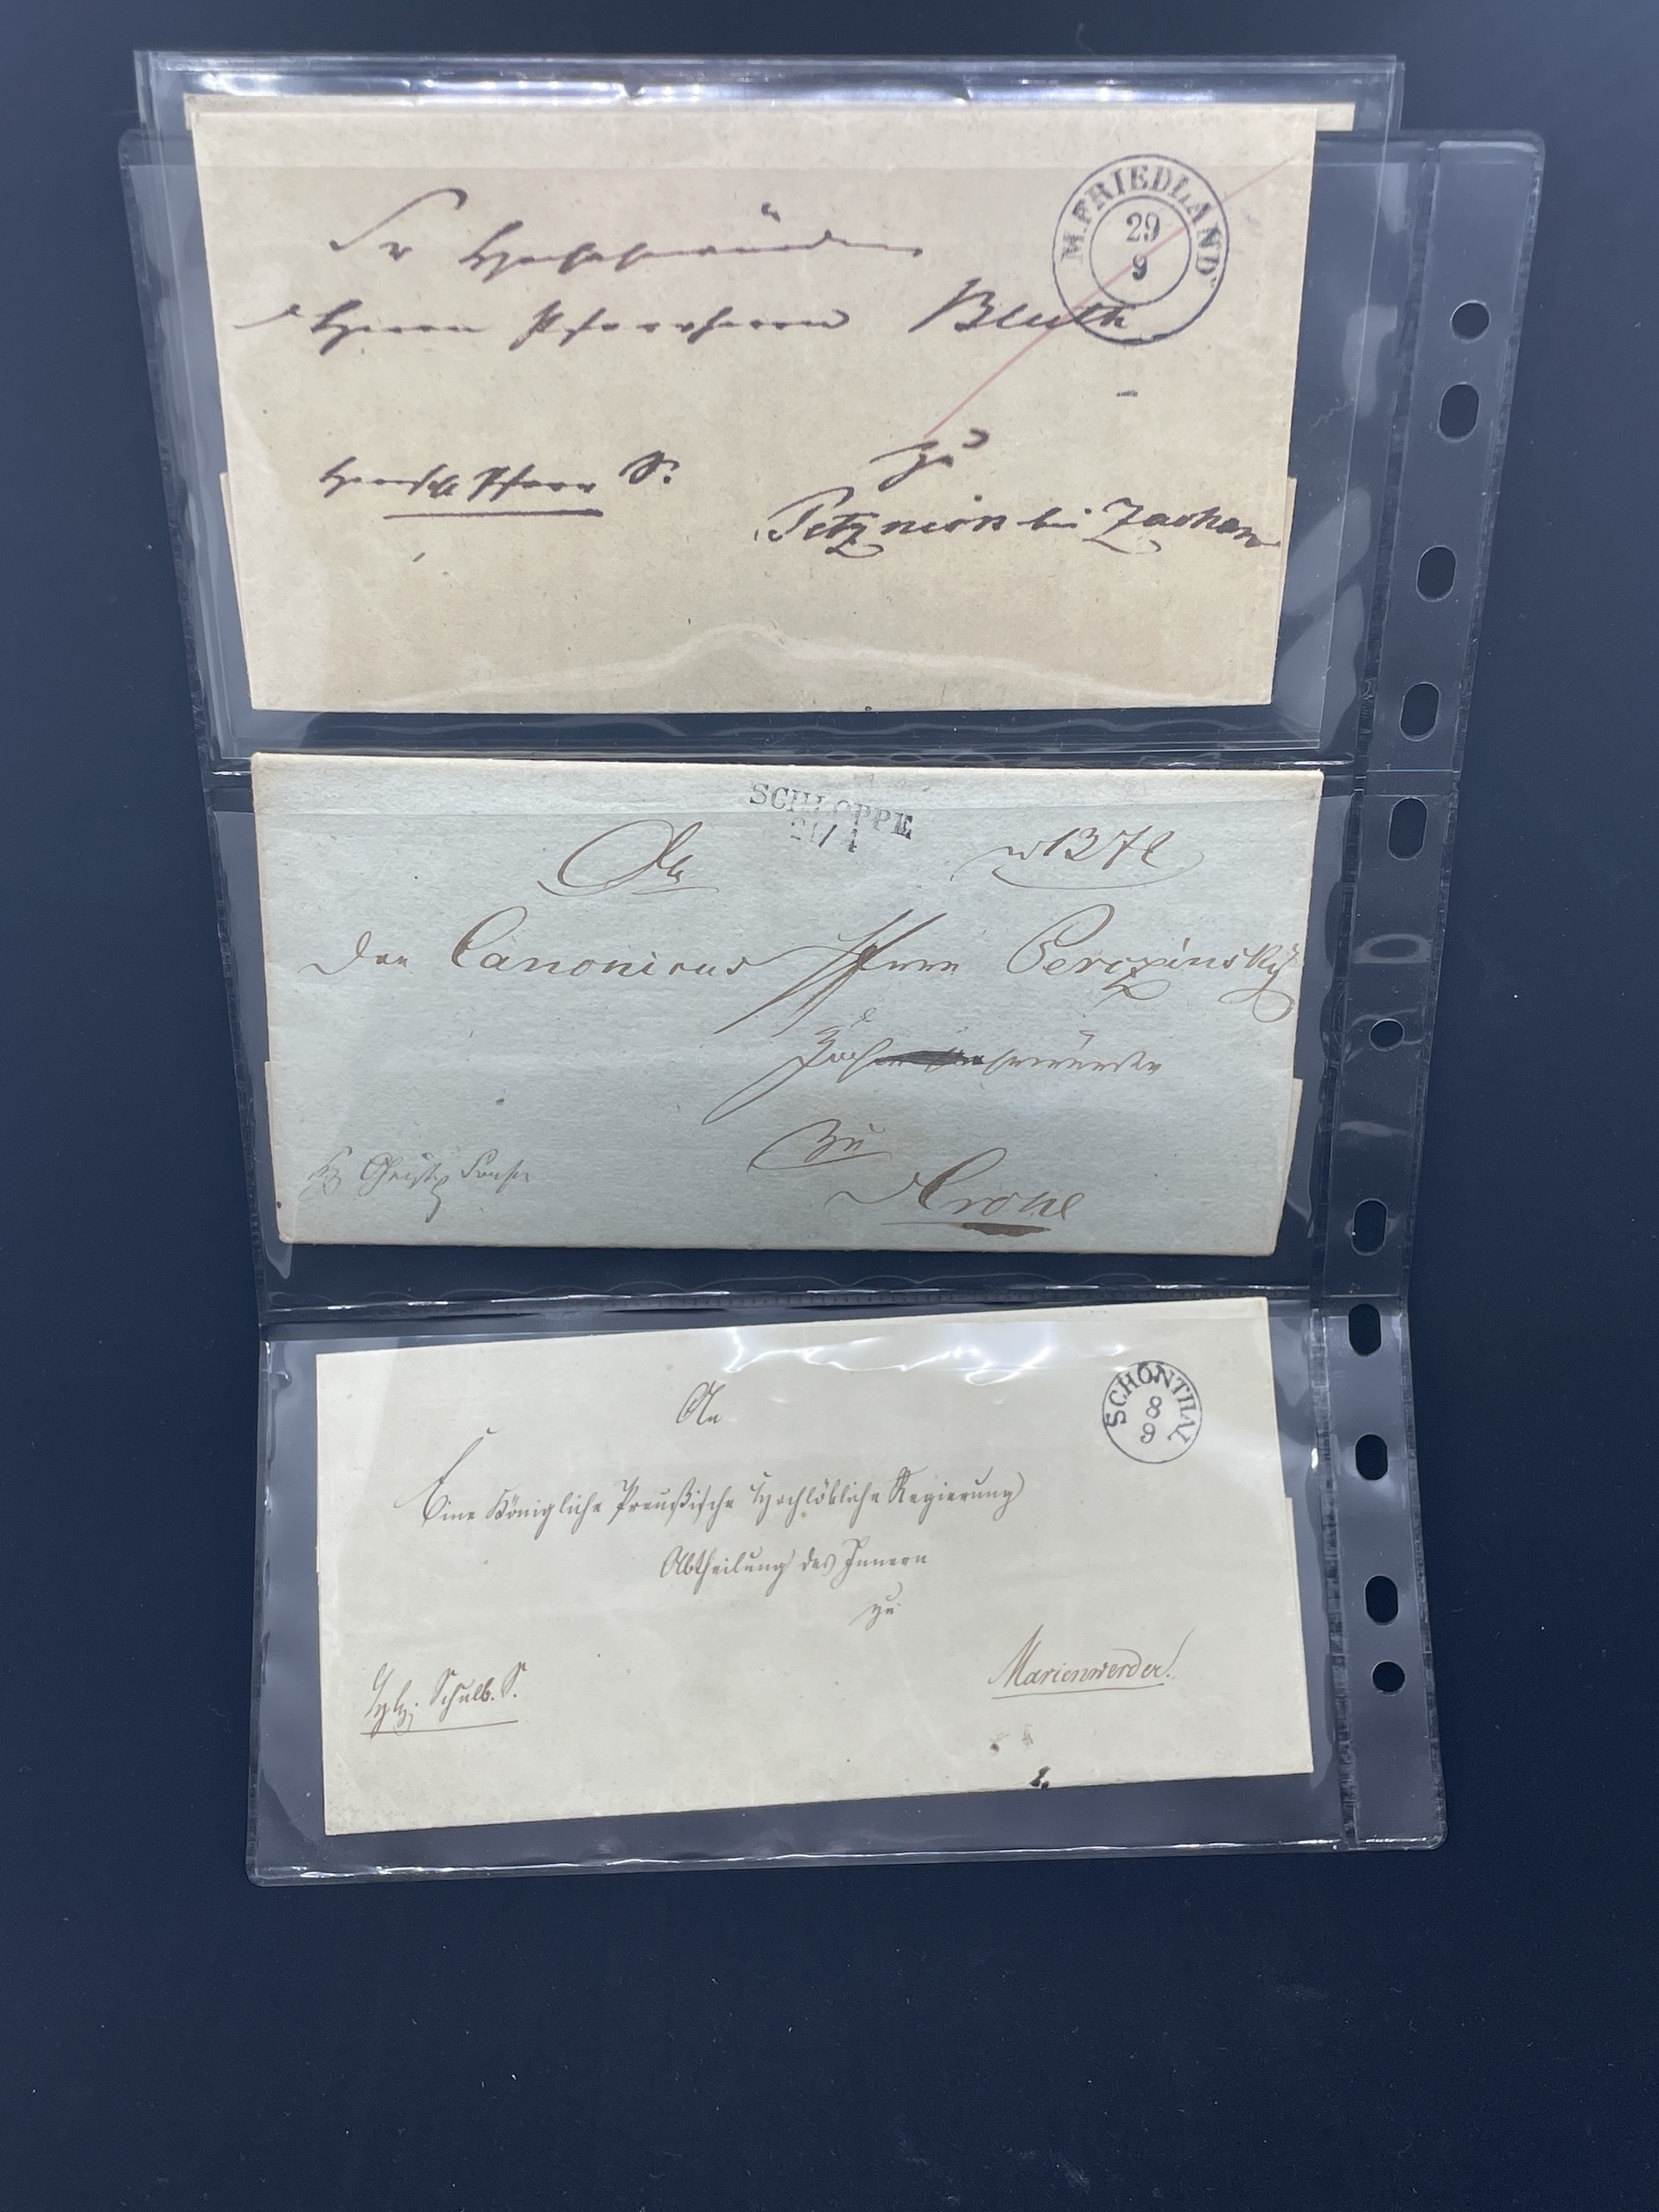 M. FRIEDLAND
29
9
Sr Hochehrwürden
Herrn Pfarrherrn Bluth
zu
Herrschl. Pfarr S.
Petznick bei Zachan
SCHLOPPE
An
den Canonicus Herrn Perzinsky
Hochehrwürden
zu
Crone
SCHÖNTHAL
8
9
An
Eine Königliche Preußische Hochlöbliche Regierung
Abtheilung des Innern
zu
Marienwerder.
Schulb. S.